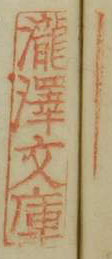 瀧澤文庫